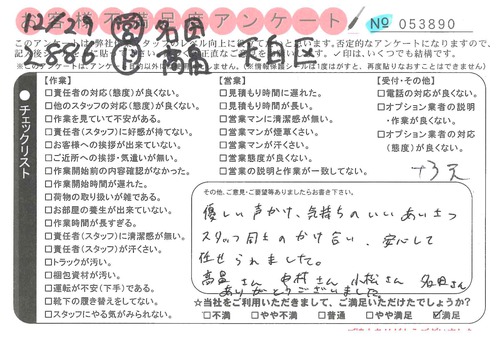 お客様満足度アンケート
№ 053890
12629
2886
このアンケートは弊社
否定的なアンケートになりますので、
いくつでも結構です。
チェックリスト
【作業】
□責任者の対応(態度)が良くない。
□他のスタッフの対応(態度)が良くない。
□作業を見ていて不安がある。
□責任者(スタッフ)に好感が持てない。
□お客様への挨拶が出来ていない。
□ご近所への挨拶・気遣いが無い。
□作業開始前の内容確認がなかった。
□作業開始時間が遅れた。
□荷物の取り扱いが雑である。
□お部屋の養生が出来ていない。
□作業時間が長すぎる。
□責任者(スタッフ)に清潔感が無い。
□責任者(スタッフ)が汗くさい。
□トラックが汚い。
□梱包資材が汚い。
□運転が不安(下手)である。
□靴下の履き替えをしてない。
□スタッフにやる気がみられない。
【営業】
□見積もり時間に遅れた。
□見積もり時間が長い。
□営業マンに清潔感が無い。
□営業マンが煙草くさい。
□営業マンが汗くさい。
□営業態度が良くない。
□営業の説明と作業が一致してない。
【受付・その他】
□電話の対応が良くない。
□オプション業者の説明
・作業が良くない。
□オプション業者の対応
(態度)が良くない。
その他、ご意見・ご要望等ありましたらお書き下さい。
優しい声かけ、気持ちのいいあいさつ
スタッフ同士のかけ合い、安心して
任せられました。
高畠さん 中村さん 小松さん 名田さん
ありがとうございました
☆当社をご利用いただきまして、ご満足いただけたでしょうか?
□不満 □やや不満 □普通 □やや満足 ☑満足